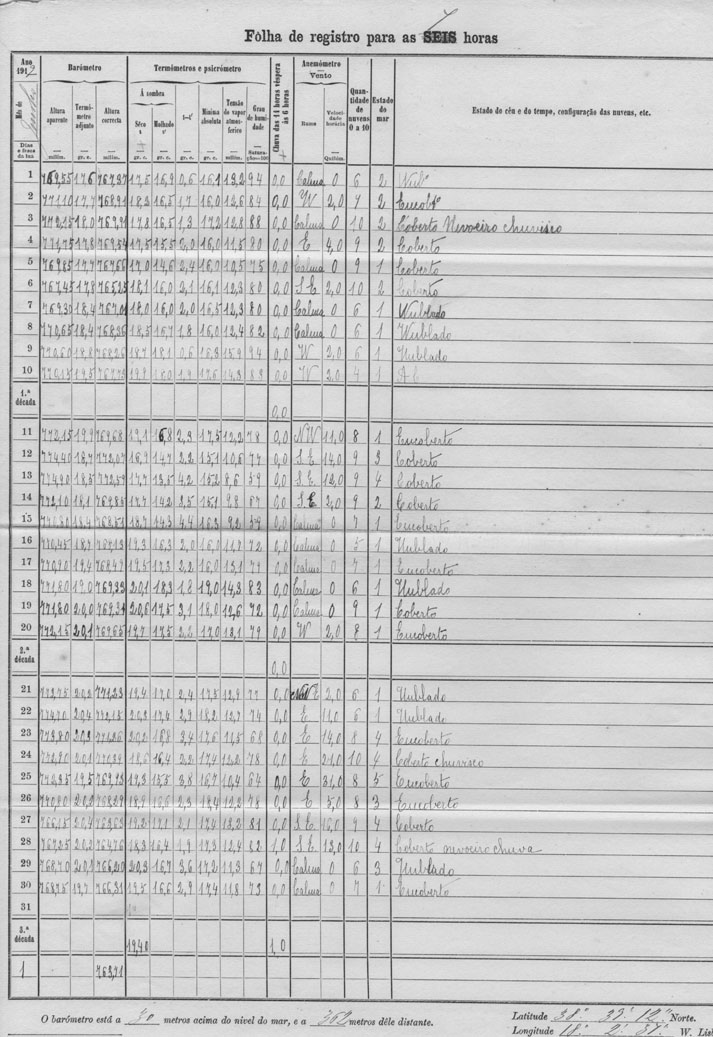 Fôlha de registro para as 7 SEIS horas
Ano 1912
Mês de Junho
Dias e frases da lua
Barómetro
Altura aparente milím.
Termómetro adjunto gr. c.
Altura correcta milím.
Termómetros e psicrómetro
Á sombra
Sêco t gr. c.
Molhado t' gr. c.
t—t' gr. c.
Mínima absoluta gr. c.
Tensão do vapor atmosférico milím.
Grau de humidade Saturação=100
Chuva das 11 horas véspera às 6 horas
Anemómetro
Vento
Rumo
Velocidade horária Quilóm.
Quantidade de nuvens 0 a 10
Estado do mar
Estado do céu e do tempo, configuração das nuvens, etc.
1 769,55 17,6 767,37 17,5 16,9 0,6 16,1 13,2 94 0,0 Calma 0 6 2
2 771,10 17,7 768,91 18,2 16,5 1,7 16,0 12,6 84 0,0 W 2,0 7 2
3 772,15 18,0 17,8 16,5 1,3 17,2 12,8 88 0,0 Calma 0 10 2 Coberto Nevoeiro chuvisco
4 771,75 17,8 17,5 15,5 2,0 16,0 11,5 80 0,0 E 4,0 9 2 Coberto
5 769,85 17,7 17,0 14,6 2,4 16,0 10,5 75 0,0 Calma 0 9 1 Coberto
6 767,45 17,8 18,1 16,0 2,1 16,1 12,3 80 0,0 S.E 2,0 10 2 Coberto
7 769,30 18,4 767,01 18,0 16,0 2,0 16,5 12,3 80 0,0 Calma 0 6 1 Nublado
8 770,65 18,4 768,36 18,5 16,7 1,8 16,0 12,4 82 0,0 Calma 0 6 1 Nublado
9 770,60 18,8 768,26 18,7 18,1 0,6 16,3 15,9 94 0,0 W 2,0 6 1 Nublado
10 770,15 19,5 18,0 1,9 17,6 14,3 83 0,0 W 2,0 4 1
1.ª década 0,0
11 772,15 19,9 769,68 19,1 16,8 2,3 17,5 12,2 78 0,0 NW 11,0 8 1 Encoberto
12 774,40 18,7 772,07 16,9 14,7 2,2 15,1 10,6 77 0,0 S.E 14,0 9 3 Coberto
13 774,90 18,5 772,59 17,7 13,5 4,2 15,2 8,6 59 0,0 S.E 12,0 9 4 Coberto
14 772,10 18,1 769,85 17,7 14,2 3,5 15,1 9,8 67 0,0 S.E 2,0 9 2 Coberto
15 770,80 18,4 768,51 18,7 14,3 4,4 16,3 9,2 0,0 Calma 0 7 1 Encoberto
16 770,45 18,7 16,3 2,0 16,0 11,7 72 0,0 Calma 0 5 1 Nublado
17 770,90 19,4 19,5 17,3 2,2 16,0 13,1 0,0 Calma 0 7 1 Encoberto
18 771,80 19,0 769,33 20,1 18,3 1,8 19,0 14,3 83 0,0 Calma 0 6 1 Nublado
19 771,80 20,0 769,31 20,6 17,5 3,1 18,0 12,6 72 0,0 Calma 0 9 1 Coberto
20 772,15 20,1 769,65 19,7 17,5 2,2 17,0 13,1 79 0,0 W 2,0 8 1 Encoberto
2.ª década 0,0
21 773,75 20,2 771,23 19,4 17,0 2,4 17,5 12,9 77 0,0 2,0 6 1 Nublado
22 774,70 20,4 20,3 17,4 2,9 18,2 12,7 74 0,0 E 11,0 6 1 Nublado
23 773,80 20,2 3,4 17,6 11,5 68 0,0 E 14,0 8 4 Encoberto
24 772,90 20,1 18,6 16,4 2,2 17,4 12,2 78 0,0 E 21,0 10 4 Coberto chuvisco
25 19,5 19,3 15,5 3,8 16,7 10,4 64 0,0 E 31,0 8 5 Encoberto
26 770,80 20,2 768,29 18,9 16,6 2,3 18,4 12,2 78 0,0 E 5,0 8 3 Encoberto
27 766,15 20,4 763,63 19,2 17,1 2,1 17,4 13,2 81 0,0 S.E 16,0 9 4 Coberto
28 767,25 20,2 764,76 18,3 16,4 1,9 17,3 12,4 82 1,0 S.E 13,0 10 4 Coberto nevoeiro chuva
29 768,70 20,2 766,20 20,3 16,7 3,6 17,2 11,3 67 0,0 Calma 0 6 3 Nublado
30 768,75 19,7 766,31 19,5 16,6 2,9 17,4 11,8 73 0,0 Calma 0 7 1 Encoberto
31
3.ª década 19,40 1,0
1 763,71
O barómetro está a 30 metros acima do nível do mar, e a 362 metros dêle distante.
Latitude 38° 37' 12" Norte.
Longitude 18° 2' 37" W. Lisb